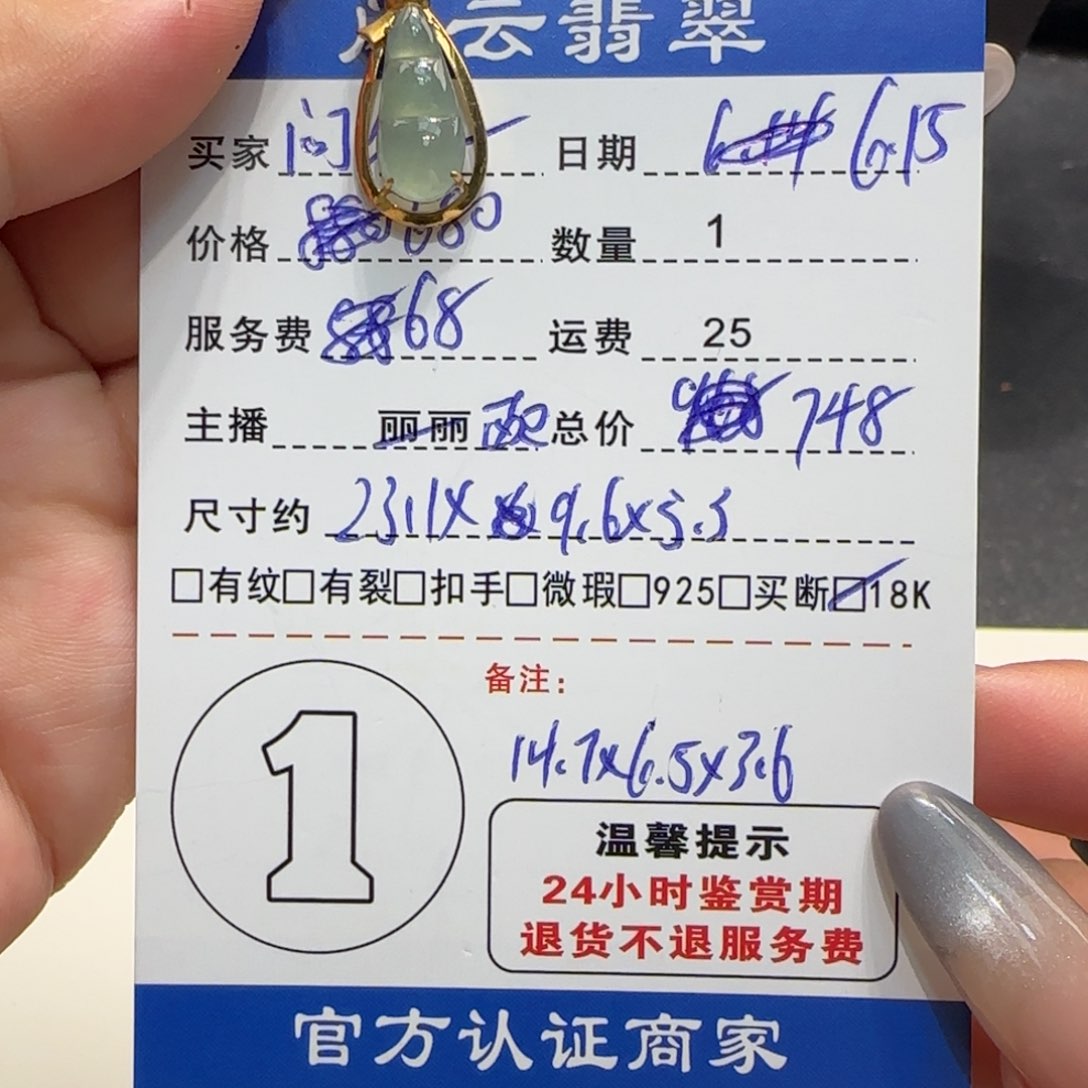 云翡翠
买家 问 日期 6.15
价格 680 数量 1
服务费 68 运费 25
主播 丽丽 总价 748
尺寸约 23.1x 9.6x5.5
□有纹□有裂□扣手□微瑕□925□买断☑18K
备注:
14.7x6.5x3.6
1
温馨提示
24小时鉴赏期
退货不退服务费
官方认证商家